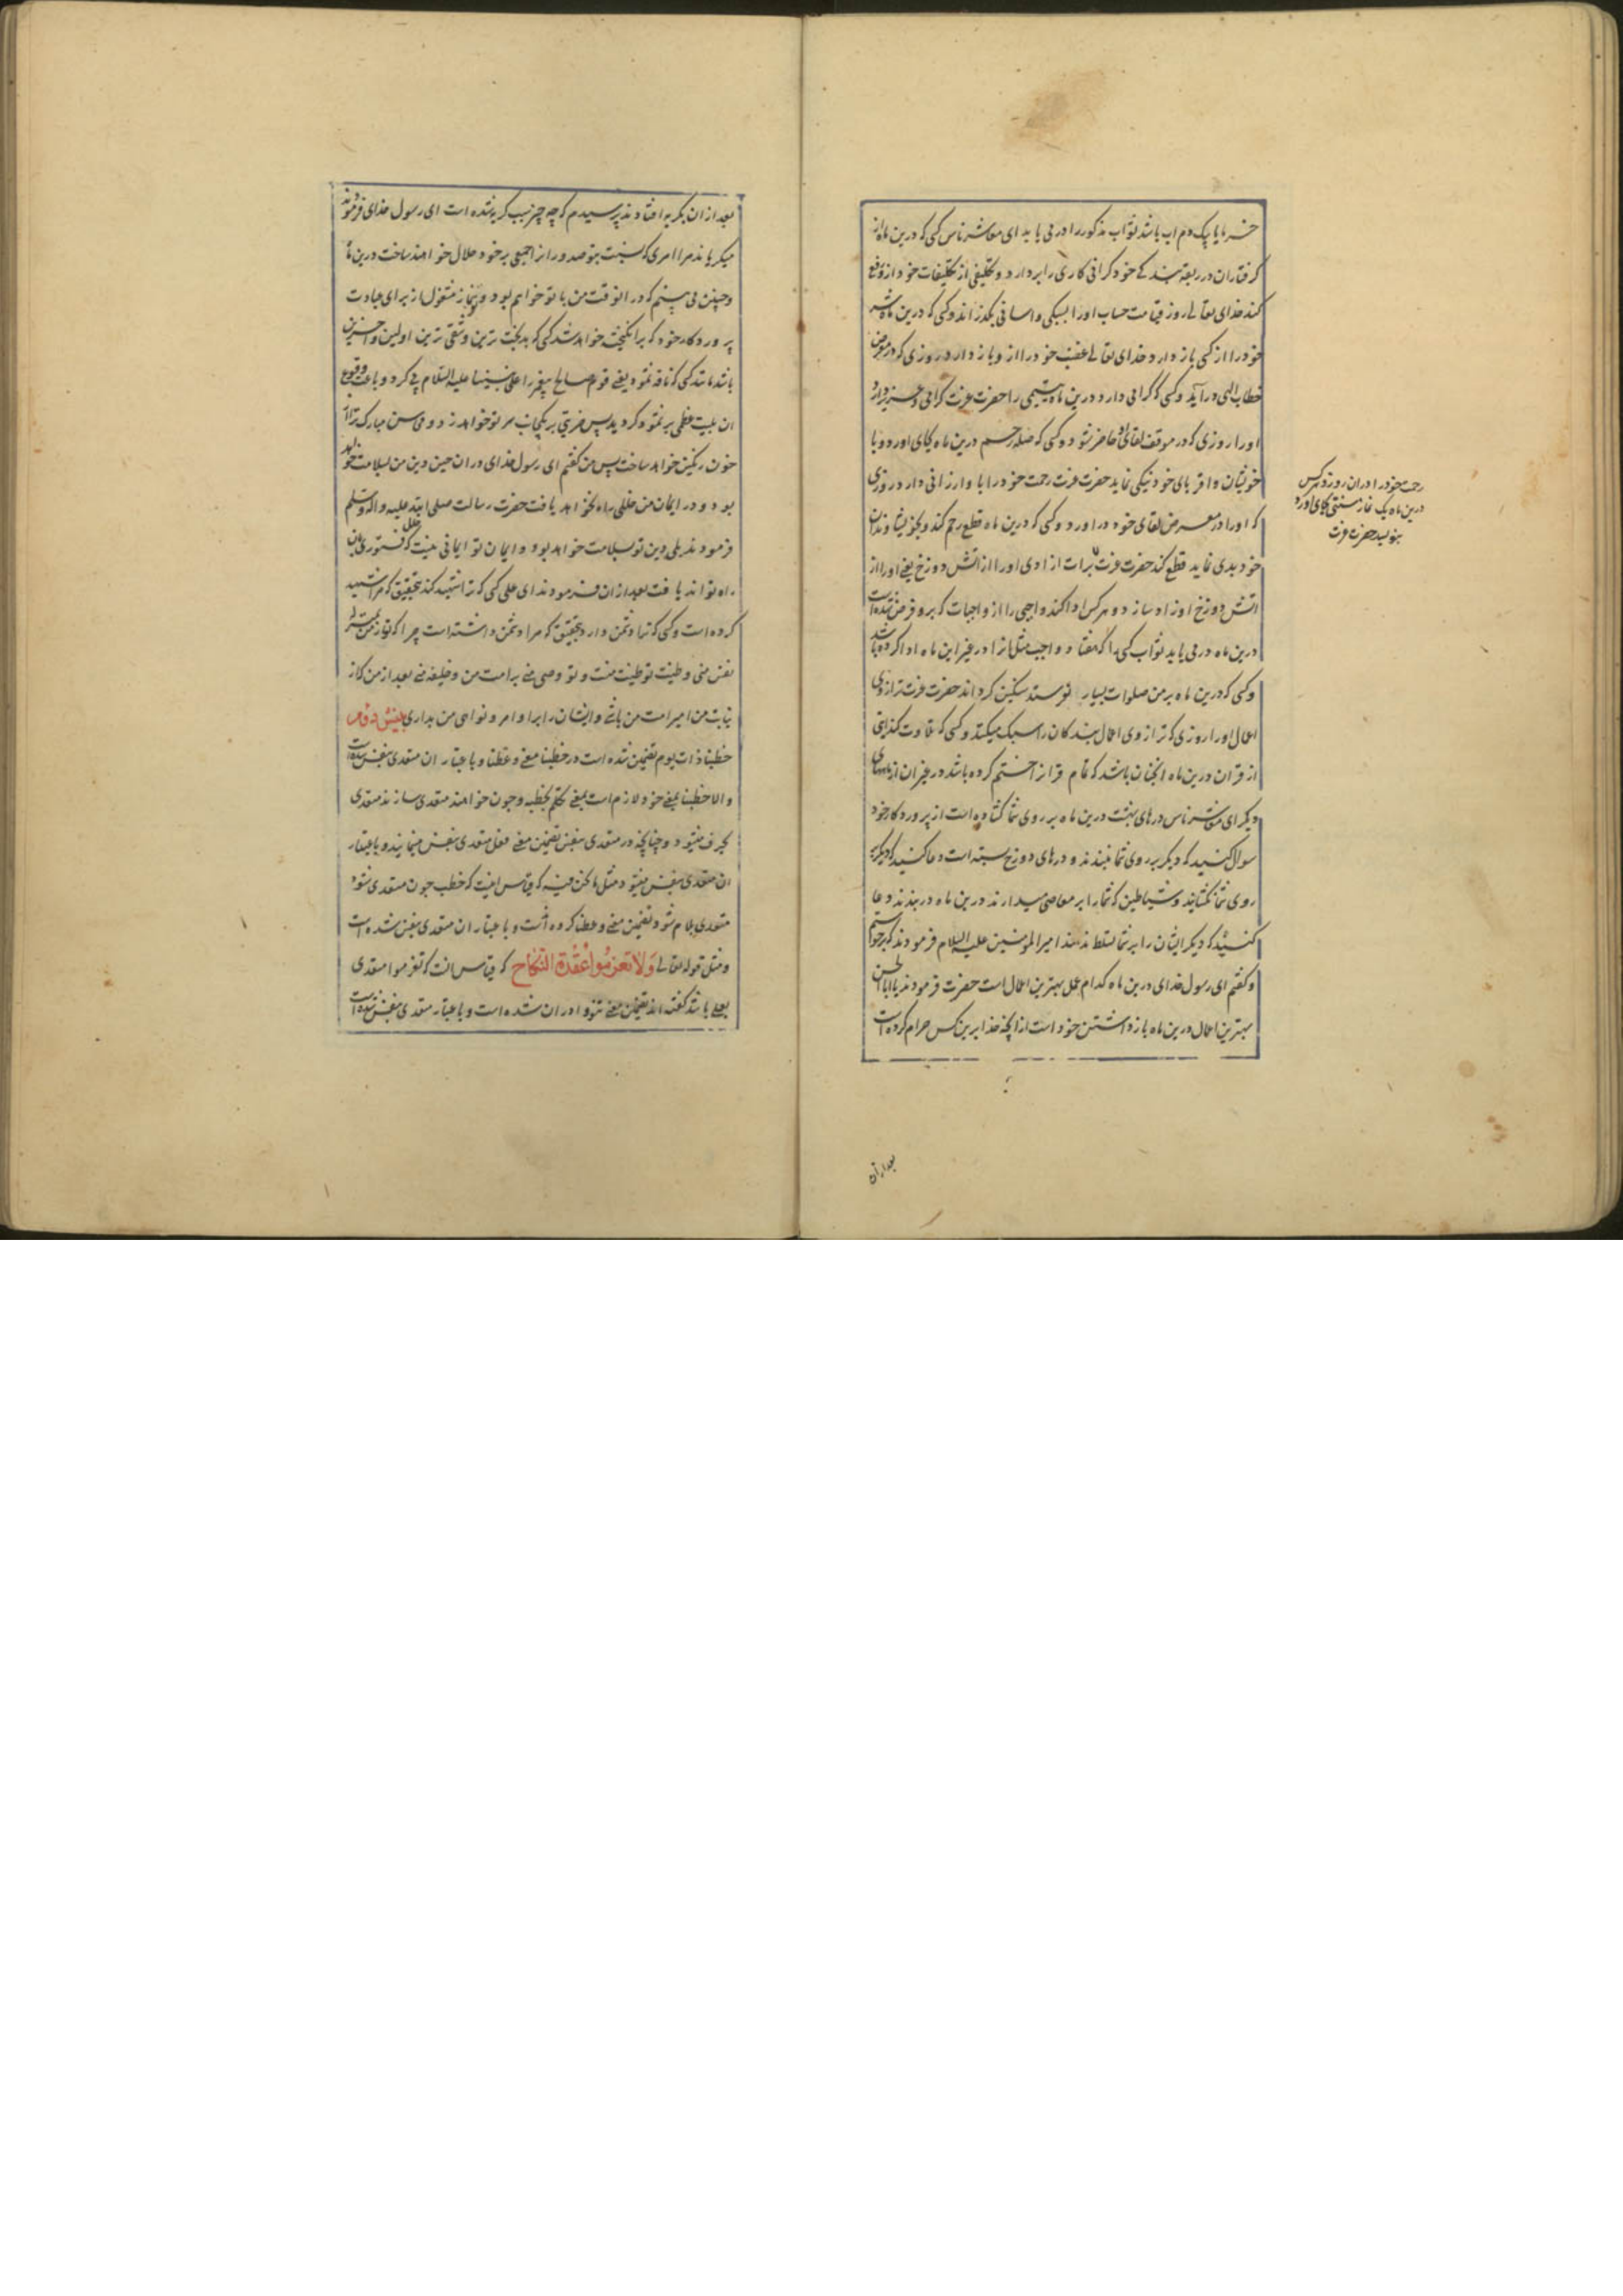 خرما یا یک دم اب باشد ثواب مذکور را در می یابد ای معاشر ناس کسی که درین ماه از
گرفتاران در ربقه بندگی خود گرانی کاری را بردارد و تکلیفی از تکلیفات خود ازو رفع
کند خدای تعالی روز قیامت حساب او را بسبکی و اسانی بگذراند و کسی که درین ماه شر
خود را از کسی باز دارد خدای تعالی غضب خود را از و باز دارد در روزی که در معرض
خطاب الهی در آید و کسی که گرامی دارد درین ماه یتیمی را حضرت عزت گرامی و عزیز دارد
او را روزی که در موقف لقای او حاضر شود و کسی که صله رحم درین ماه بجای اورد و با
خویشان و اقربای خود نیکی نماید حضرت عزت رحمت خود را با و ارزانی دارد در روزی
که او را در معرض لقای خود در اورد و کسی که درین ماه قطع رحم کند و بخویشاوندان
خود بدی نماید قطع کند حضرت عزت برات ازادی او را از اتش دوزخ یعنی او را از
اتش دوزخ ازاد سازد و هر کس ادا کند واجبی را از واجبات که برو فرض شده است
درین ماه در می یابد ثواب کسی را که هفتاد واجب مثل انرا در غیر این ماه ادا کرده باشد
و کسی که درین ماه بر من صلوات بسیار فرستد سنگین گرداند حضرت عزت ترازوی
اعمال او را روزی که ترازوی اعمال بندگان را سبک میکند و کسی که تلاوت کند ایتی
از قران درین ماه انچنان باشد که تمام قرانرا ختم کرده باشد در غیر ان از ماههای
دیگر ای معاشر ناس درهای بهشت درین ماه بر روی شما گشاده است از پروردگار خود
سوال کنید که دیگر بر روی شما نبندند و درهای دوزخ بسته است دعا کنید که دیگر بر
روی شما نگشایند و شیاطین که شما را بر معاصی میدارند درین ماه در بندند دعا
کنید که دیگر ایشان را بر شما تسلط ندهند امیر المومنین علیه السلام فرمودند که برخواستم
و گفتم ای رسول خدای درین ماه کدام عمل بهترین اعمال است حضرت فرمودند یا ابا الحسن
بهترین اعمال درین ماه باز داشتن خود است از انچه خدا برین کس حرام کرده است
رحمت خود را در ان روز و هر کس
درین ماه یک نماز سنتی بجای اورد
بنویسد حضرت عزت
بعد از آن
بعد از ان بگریه افتادند پرسیدم که چه چیز سبب گریه شده است ای رسول خدای فرمودند
میگریاند مرا امری که نسبت بتو صدور از جمعی بر خود حلال خواهند ساخت درین ماه
و چنین می بینم که در انوقت من با تو خواهم بود و تو بنماز مشغول از برای عبادت
پروردگار خود که برانگیخته خواهد شد کسی که بدبخت ترین و شقی ترین اولین و اخرین
باشد مانند کسی که ناقه ثمود یعنی قوم صالح پیغمبر را علی نبینا و علیه السلام پی کرد و باعث وقوع
ان بلیت عظمی بر ثمود گردید پس ضربتی بر یکجانب سر تو خواهد زد و محاسن مبارک ترا از
خون رنگین خواهد ساخت پس من گفتم ای رسول خدای در ان حین دین من بسلامت خواهد
بود و در ایمان من خللی راه نخواهد یافت حضرت رسالت صلی الله علیه و اله و سلم
فرمودند بلی دین تو بسلامت خواهد بود و ایمان تو ایمانی نیست که خلل و فتوری بان
راه تواند یافت بعد از ان فرمودند ای علی کسی که ترا شهید کند بتحقیق که مرا شهید
کرده است و کسی که ترا دشمن دارد بتحقیق که مرا دشمن داشته است چرا که تو از من بمنزله
نفس منی و طینت تو طینت منست و تو وصی منی بر امت من و خلیفه منی بعد از من که از
نیابت من امیر امت من باشی و ایشان را بر اوامر و نواهی من بداری
خطبنا ذات یوم تضمین شده است در خطبنا معنی وعظنا و باعتبار ان متعدی بنفس شده است
و الا خطبنا بمعنی خود لازم است بمعنی تکلم بخطبه و چون خواهند متعدی سازند متعدی
بحرف میشود و چنانچه در متعدی بنفس تضمین معنی فعل متعدی بنفس مینمایند و باعتبار
ان متعدی بنفس میشود مثل ما نحن فیه که قیاس اینست که خطب چون متعدی شود
متعدی بلام شود تضمین معنی وعظنا کرده است و باعتبار ان متعدی بنفس شده است
و مثل قوله تعالی وَلَا تَعْزِمُوا عُقْدَةَ النِّكَاحِ که قیاس انست که تعزموا متعدی
بعلی باشد گفته اند تضمین معنی تنووا در ان شده است و باعتبار متعدی بنفس شده است